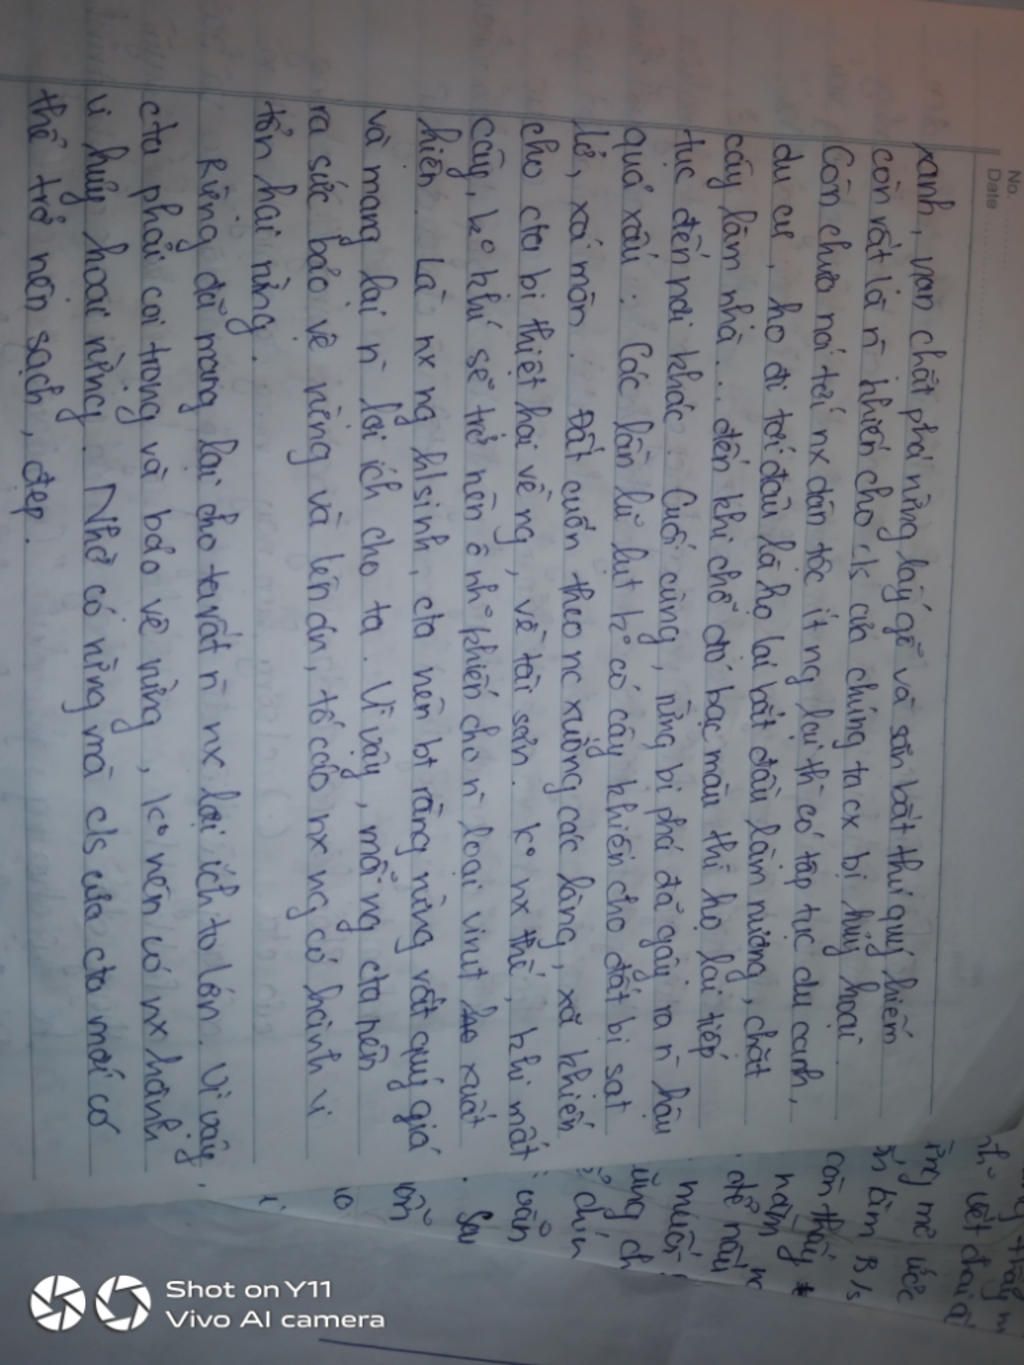 No.
Date
xanh, vạn chặt phá rừng lấy gỗ và săn bắt thú quý hiếm
còn rất là n̄ khiến cho c/s của chúng ta cx bị hủy hoại
Còn chưa nói tới nx dân tộc ít ng lại thì có tập tục du canh,
du cư, họ đi tới đâu là họ lại bắt đầu làm nương, chặt
cây làm nhà... đến khi chỗ đó bạc màu thì họ lại tiếp
tục đến nơi khác. Cuối cùng, rừng bị phá đã gây ra n̄ hậu
quả xấu: Các lần lũ lụt k° có cây khiến cho đất bị sạt
lở, xói mòn. Đất cuốn theo nc xuống các làng, xã khiến
cho cta bị thiệt hại về ng, về tài sản. K° nx thế, khi mất
cây, k° khí sẽ trở nên ô nh° khiến cho n̄ loại virut xuất
hiện. Là nx ng h/sinh, cta nên bt rằng rừng rất quý giá
và mang lại n̄ lợi ích cho ta. Vì vậy, mỗi ng cta nên
ra sức bảo vệ rừng và lên án, tố cáo nx ng có hành vi
tổn hại rừng.
Rừng đã mang lại cho ta rất n̄ nx lợi ích to lớn. Vì vậy,
cta phải coi trọng và bảo vệ rừng, k° nên có nx hành
vi hủy hoại rừng. Nhờ có rừng mà c/s của cta mới có
thể trở nên sạch, đẹp.
Shot on Y11
Vivo AI camera